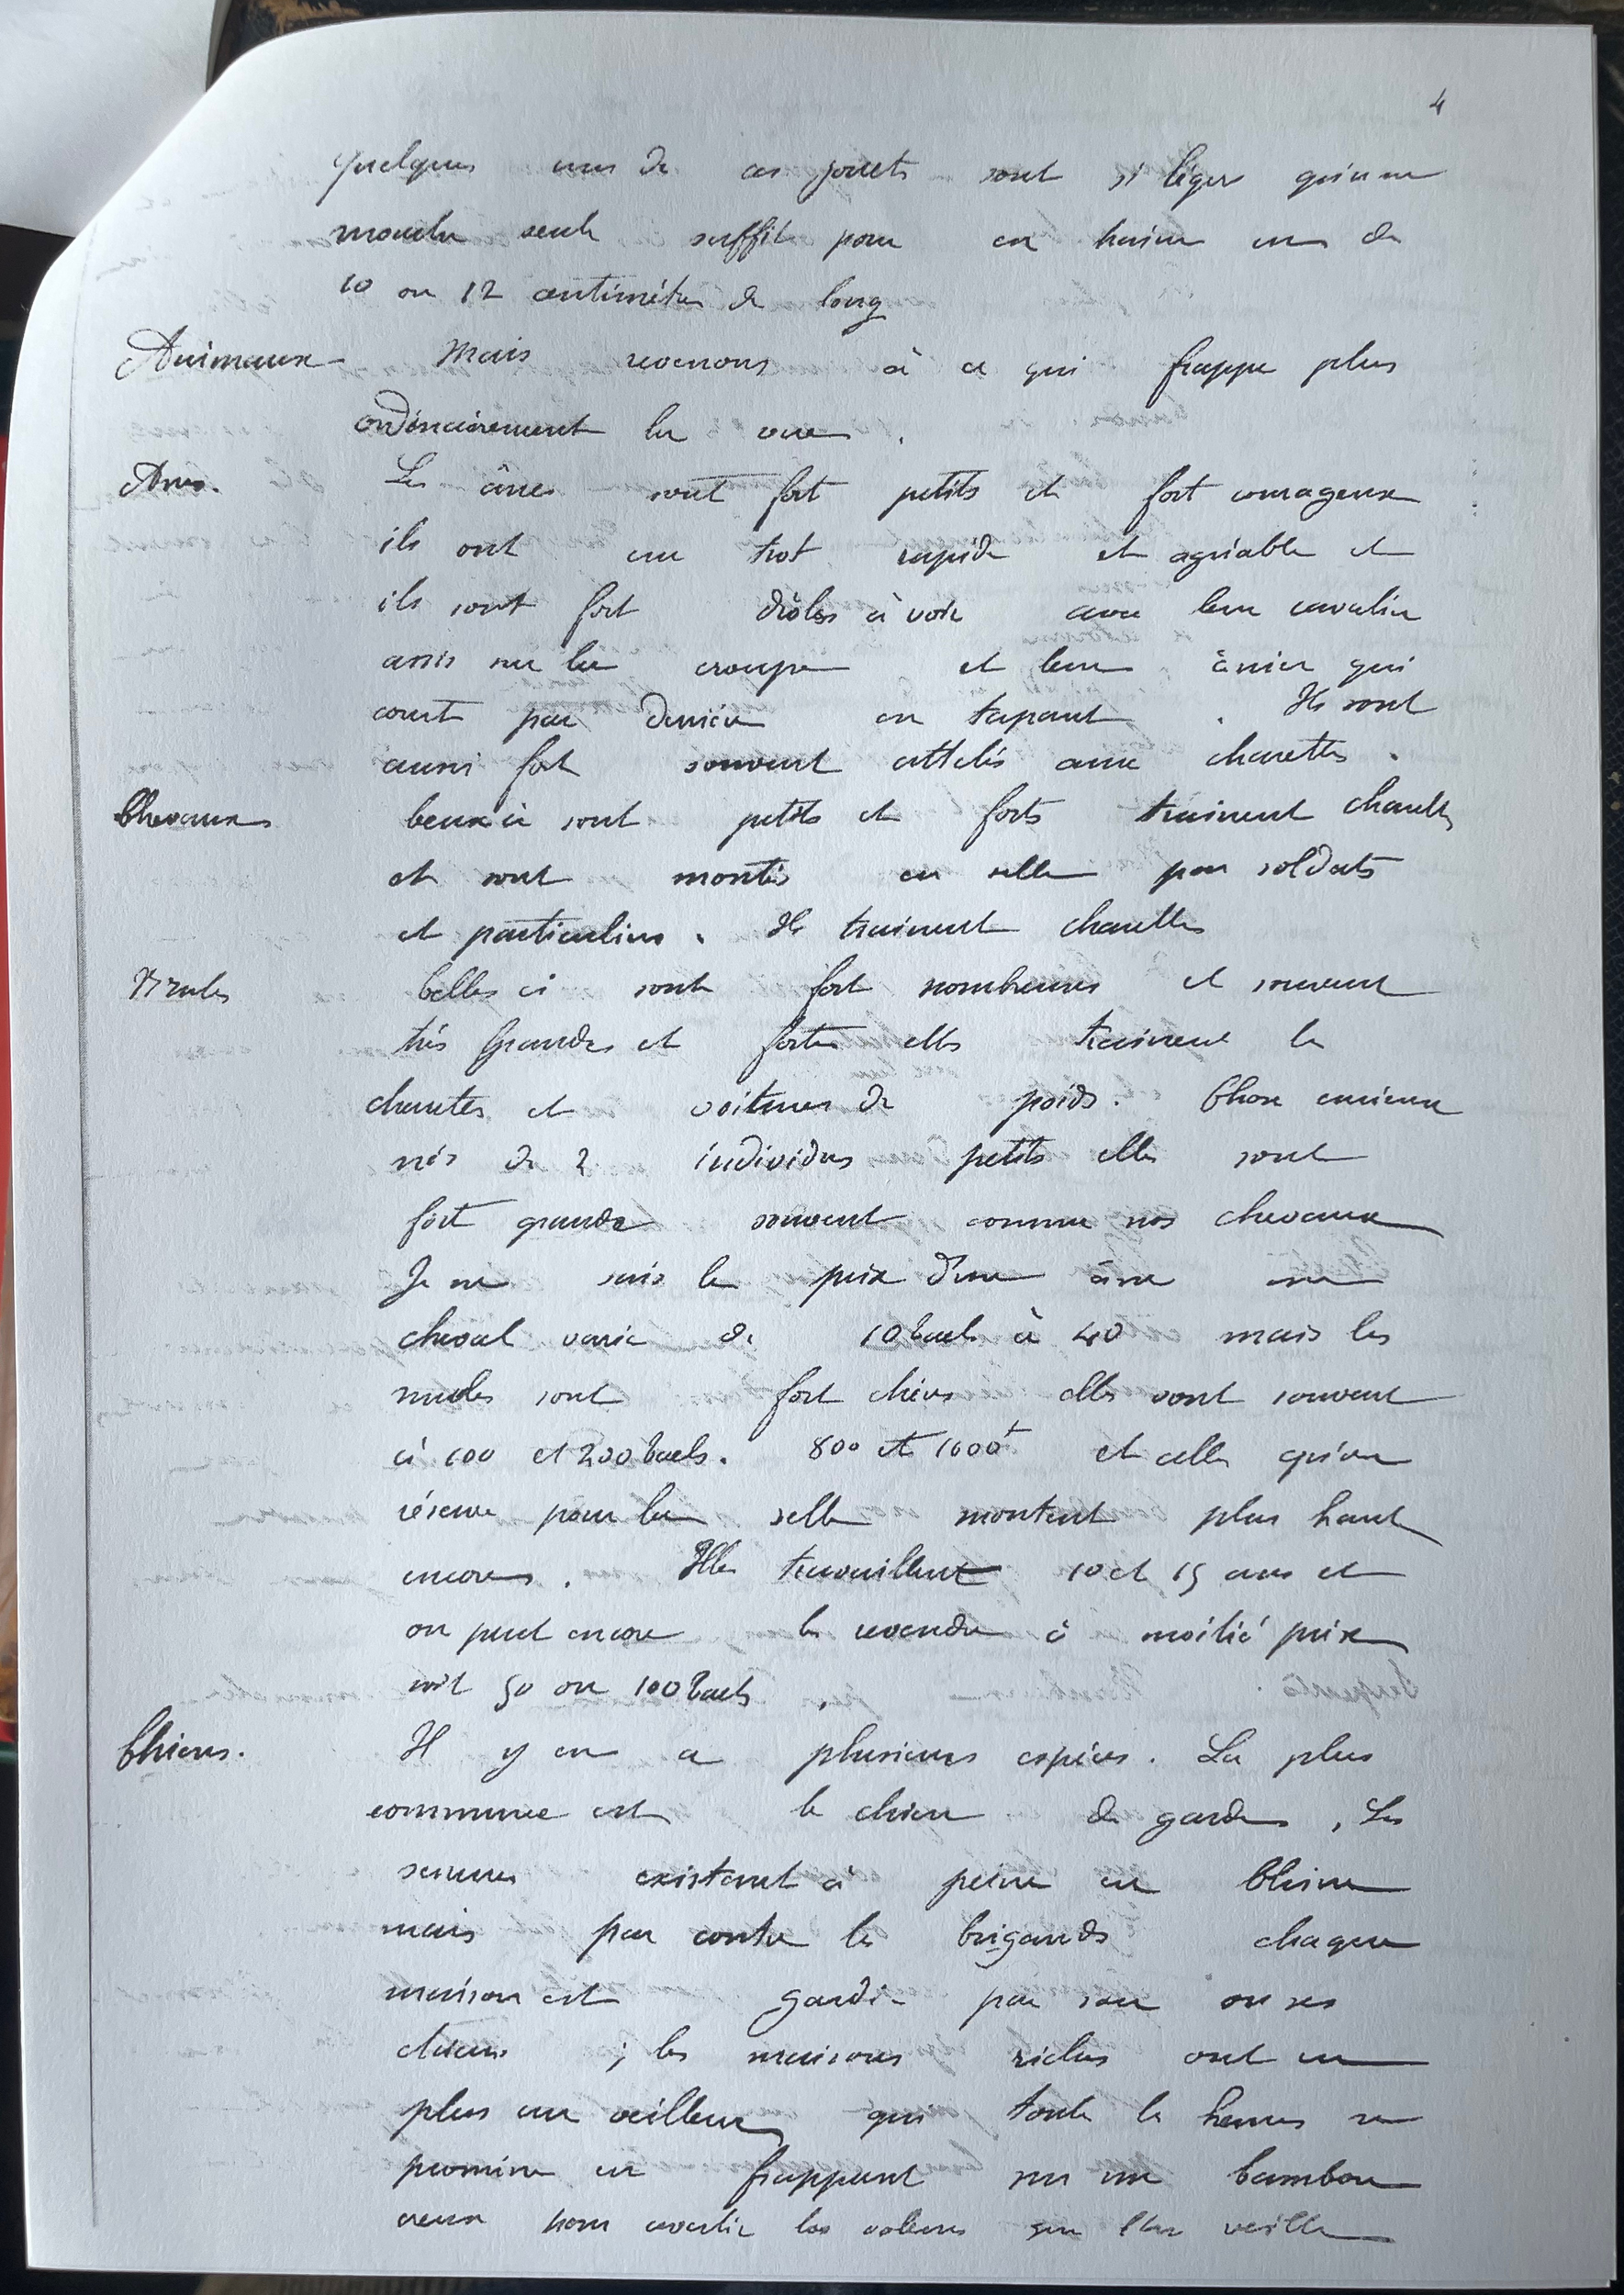 4
quelques uns de ces jouets sont si léger qu'une
mouche seule suffit pour en trainer un de
10 ou 12 centimètres de long
Animaux - Mais revenons à ce qui frappe plus
ordinairement la vue.
Anes. Les ânes sont fort petits et fort courageux
ils ont un trot rapide et agréable et
ils sont fort drôles à voir avec leur cavalier
assis sur la croupe et leur ânier qui
court par derrière en tapant. Ils sont
aussi fort souvent attelés aux charettes.
Chevaux Ceux ci sont petits et forts trainent charettes
et sont montés en selle par soldats
et particuliers. Ils trainent charettes
Mules Celles ci sont fort nombreuses et souvent
très grandes et fortes elles trainent les
charettes et voitures de poids. Chose curieuse
nés de 2 individus petits elles sont
fort grandes souvent comme nos chevaux
Je ne sais le prix d'une âne un
cheval varie de 10 taels à 40 mais les
mules sont fort chères elles vont souvent
à 100 et 200 taels. 800 et 1000f et celles qu'on
réserve pour la selle montent plus haut
encore. Elles travaillent 10 et 15 ans et
on peut encore les revendre à moitié prix
soit 50 ou 100 taels.
Chiens. Il y en a plusieurs espèces. La plus
commune est le chien de garde. Les
existant à peine en Chine
mais par contre les brigands chaque
maison est gardée par son ou ses
chiens ; les maisons riches ont en
plus un veilleur qui toute les heures se
promène en frappant sur un bambou
creux pour avertir les voleurs que l'on veille